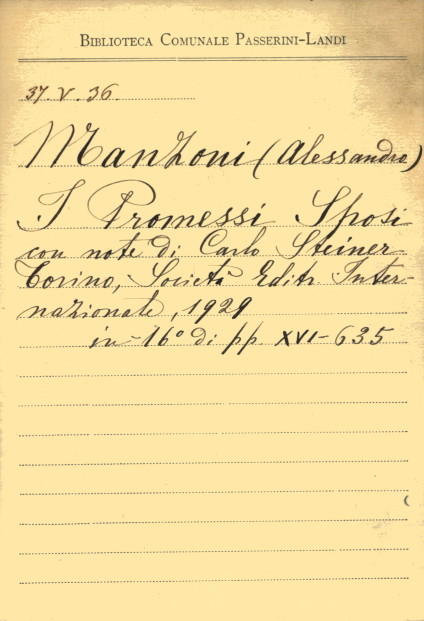 BIBLIOTECA COMUNALE PASSERINI-LANDI
37. V. 36.
Manzoni (Alessandro)
I Promessi Sposi
con note di Carlo Steiner
Torino, Società Editr. Inter-
nazionale, 1929
in-16° di pp. XVI-635